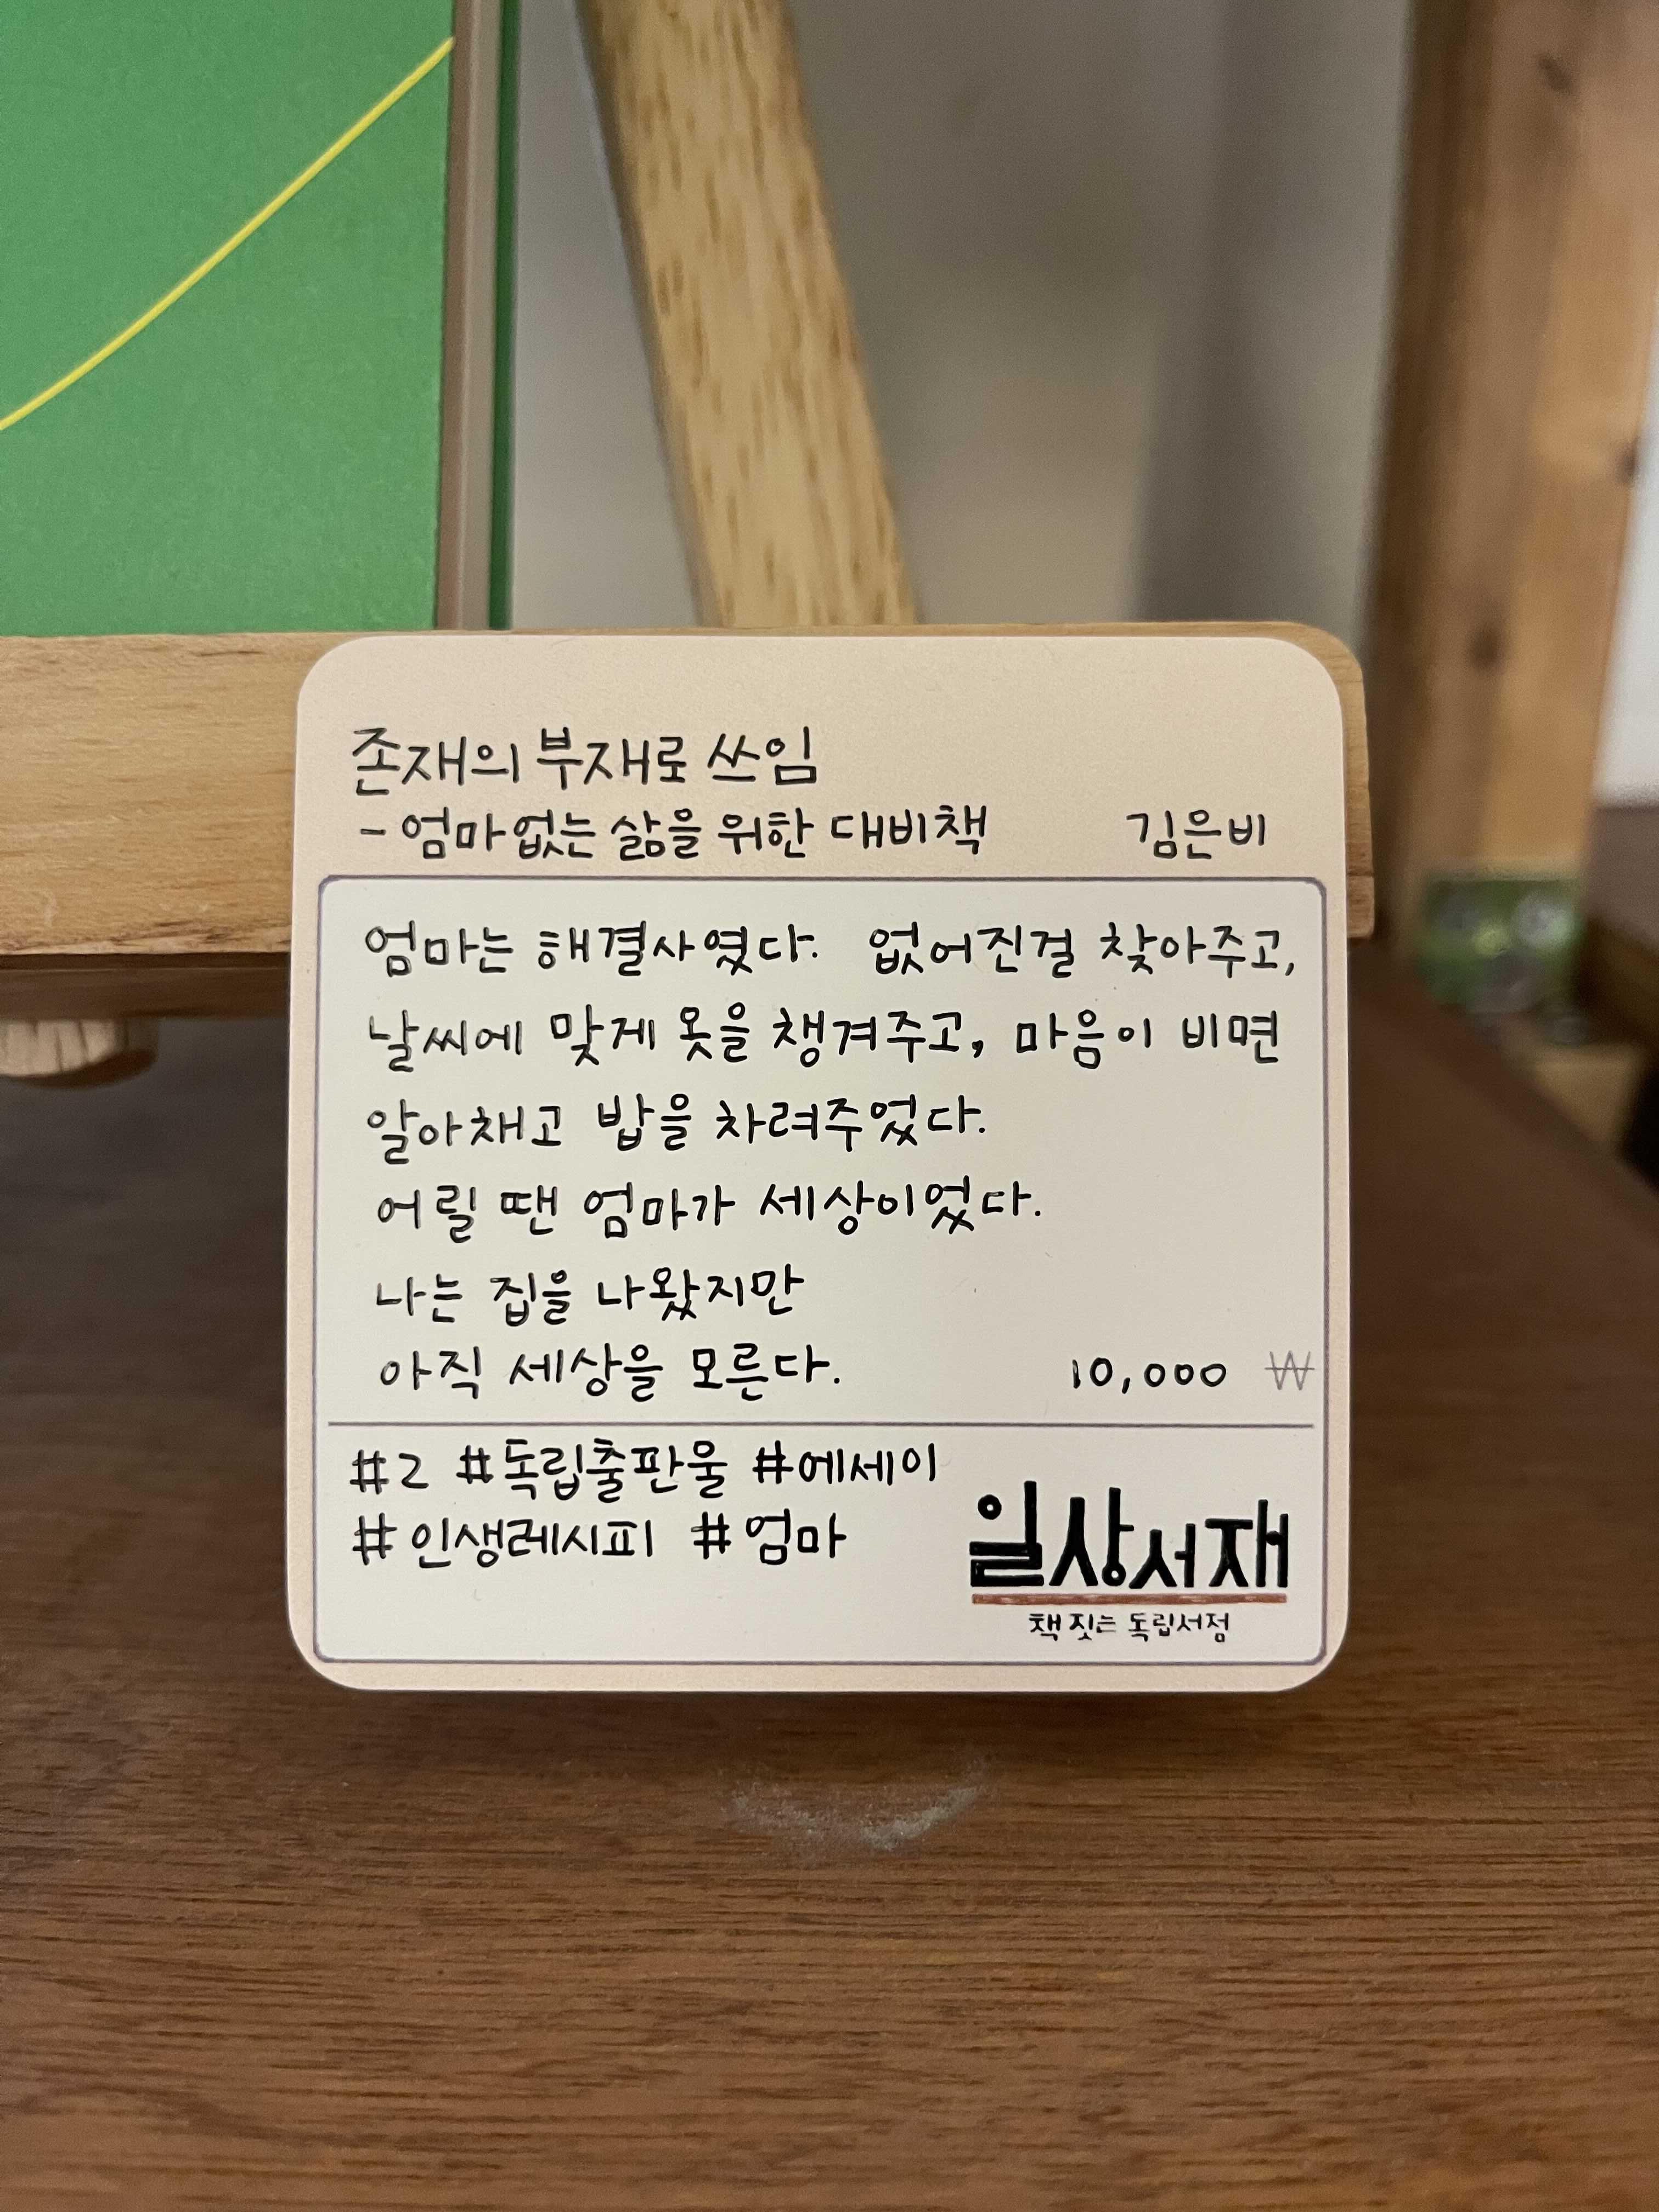 존재의 부재로 쓰임
- 엄마 없는 삶을 위한 대비책 김은비
엄마는 해결사였다. 없어진걸 찾아주고,
날씨에 맞게 옷을 챙겨주고, 마음이 비면
알아채고 밥을 차려주었다.
어릴 땐 엄마가 세상이었다.
나는 집을 나왔지만
아직 세상을 모른다. 10,000 ₩
#2 #독립출판물 #에세이
#인생레시피 #엄마
일상서재
책 짓는 독립서점